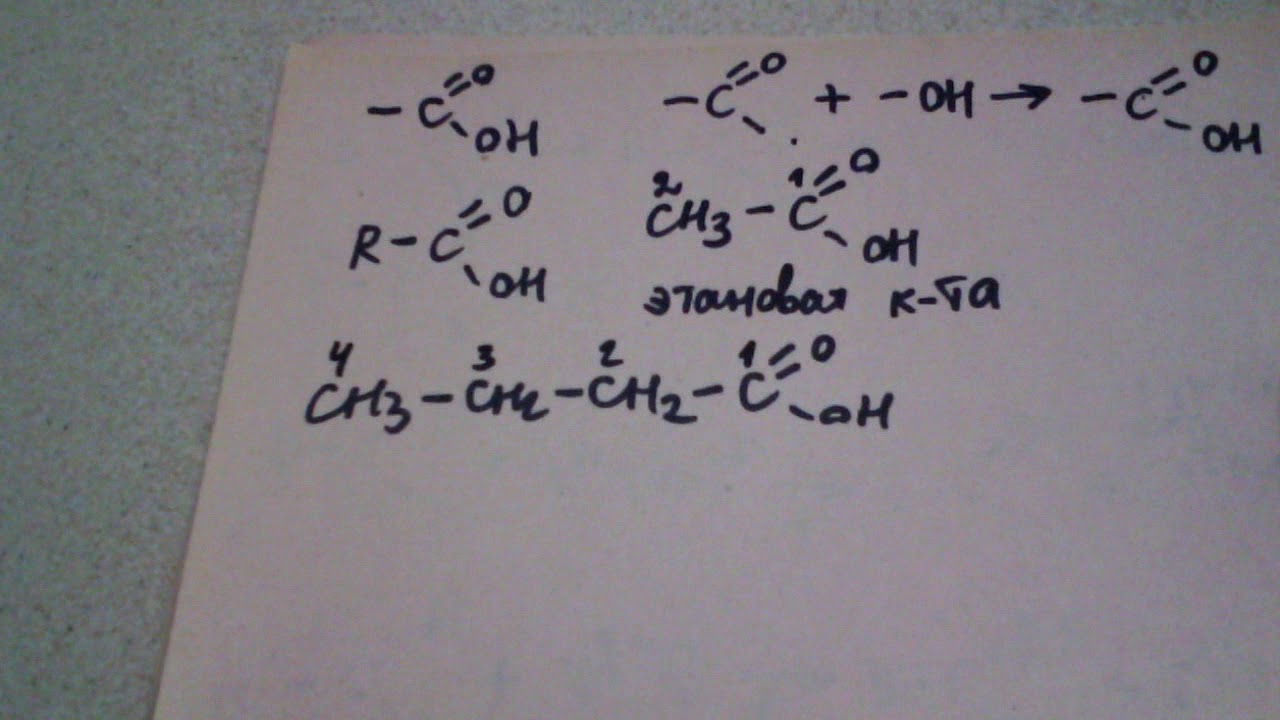 -C=O OH    -C=O + -OH → -C=O OH
R-C=O OH    2 CH3 - 1 C=O OH
этановая к-та
4 CH3 - 3 CH2 - 2 CH2 - 1 C=O OH